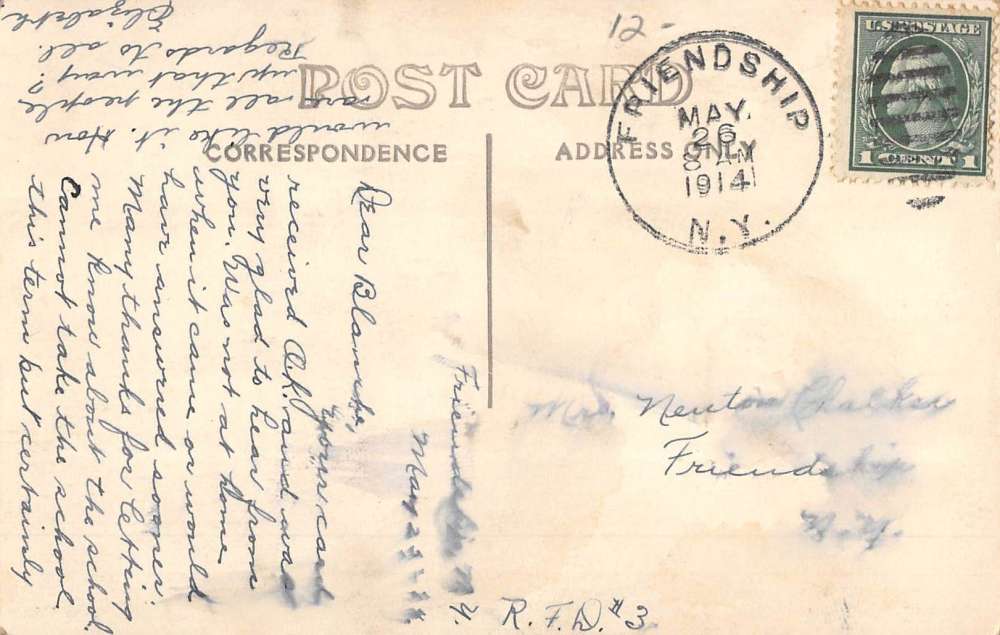 12-
POST CARD
CORRESPONDENCE
ADDRESS ONLY
FRIENDSHIP
MAY.
26
8 AM
1914
N.Y.
U.S. POSTAGE
1 CENT 1
Mrs. Newton Chalker
Friendship
N.Y.
R.F.D. #3
Friendship N.Y.
May 25
Dear Blanche,
Your card
received O.K. and was
very glad to hear from
you. Was not at home
when it came or would
have answered sooner.
Many thanks for letting
me know about the school.
Cannot take the school
this term but certainly
would like it. How
are all the people
up that way?
Regards to all.
Elizabeth